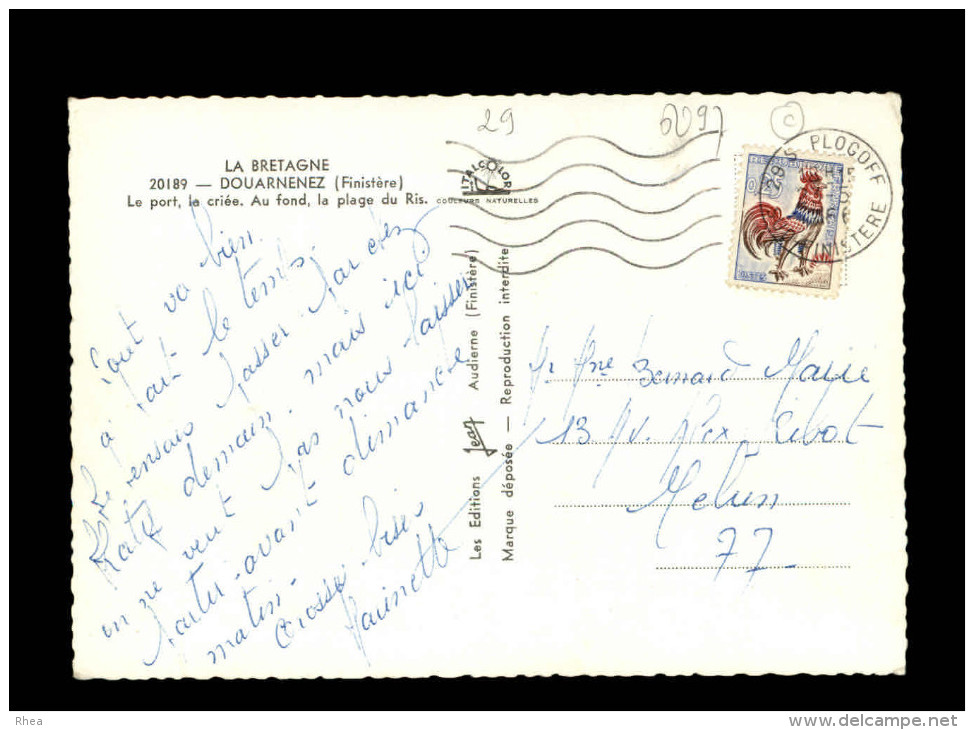 29
C
LA BRETAGNE
20189 — DOUARNENEZ (Finistère)
Le port, la criée. Au fond, la plage du Ris.
ITALCOLOR
COULEURS NATURELLES
PLOGOFF
FINISTERE
Tout va bien
à part le temps,
pensais passer par chez
Katy demain. mais ici
on ne veut pas nous laisser
partir avant dimanche
matin
Grosses bises
Les Editions Jean Audierne (Finistère)
Marque déposée — Reproduction interdite
Mr Mme Bernard
13 AV.
Melun
77
Rhea
www.delcampe.net